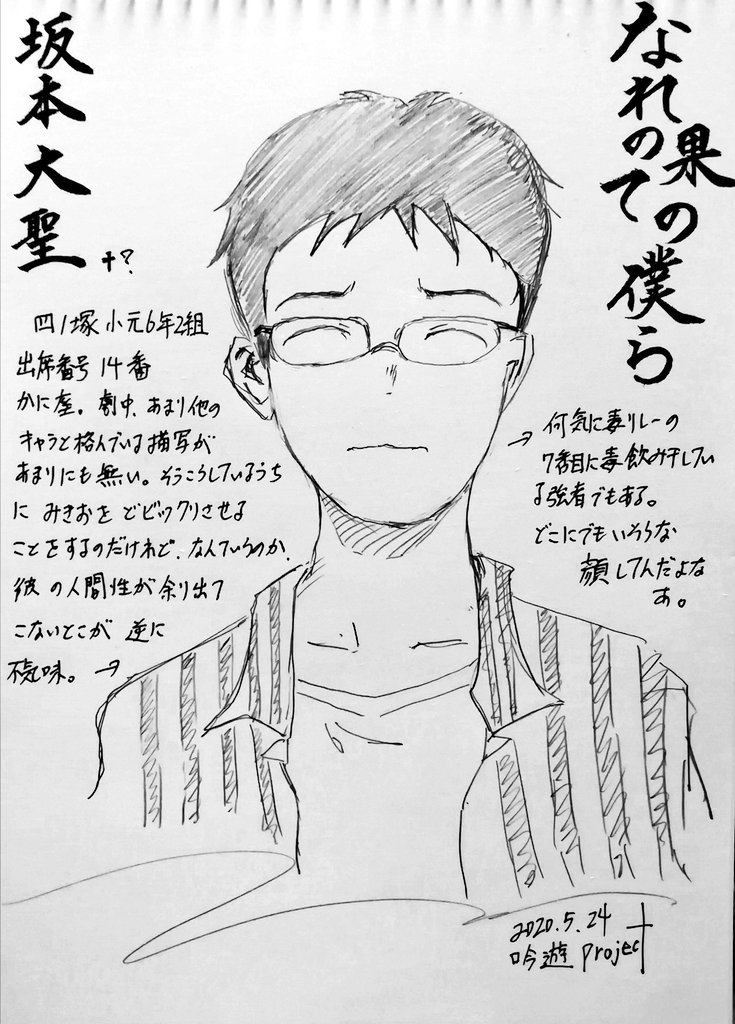 なれの果ての僕ら
坂本大聖
+?
四ノ塚小元6年2組
出席番号 14番
かに座。劇中、あまり他の
キャラと格んでいる描写が
あまりにも無い。そうこうしているうち
に みきおを どビックリさせる
ことをするのだけれど、なんていうのか、
彼の人間性が余り出て
こないとこが 逆に
不気味。→
→ 何気に毒リレーの
7番目に毒飲み干してい
る強者でもある。
どこにでもいそうな
顔してんだよな
あ。
2020.5.24
吟遊 project